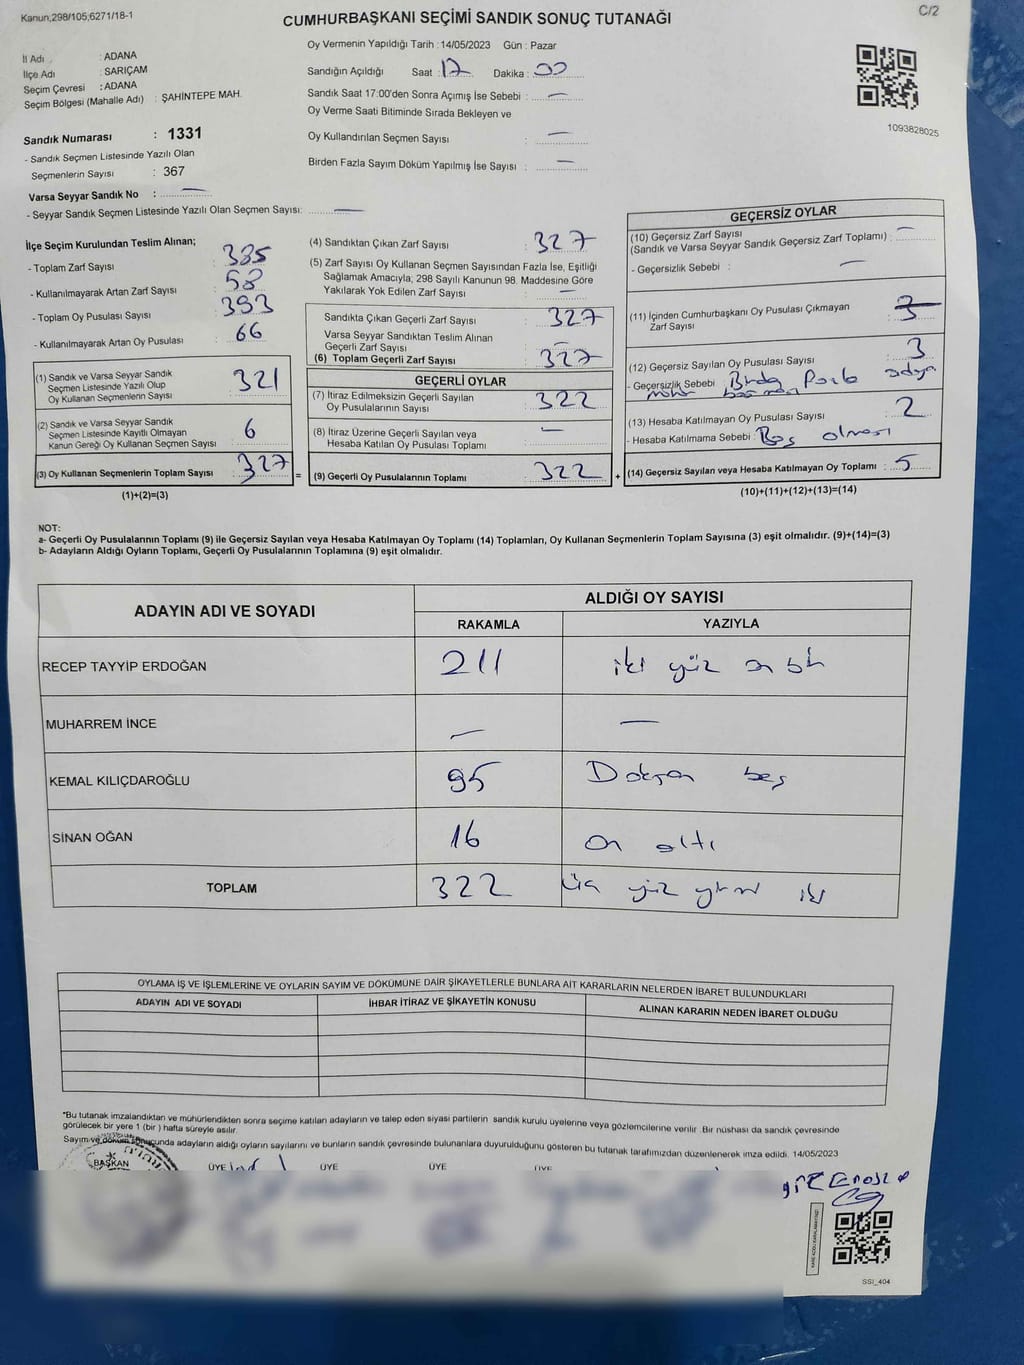 Kanun,298/105;6271/18-1
C/2
CUMHURBAŞKANI SEÇİMİ SANDIK SONUÇ TUTANAĞI
İl Adı : ADANA
İlçe Adı : SARIÇAM
Seçim Çevresi : ADANA
Seçim Bölgesi (Mahalle Adı) : ŞAHİNTEPE MAH.
Sandık Numarası : 1331
- Sandık Seçmen Listesinde Yazılı Olan
Seçmenlerin Sayısı : 367
Varsa Seyyar Sandık No : —
- Seyyar Sandık Seçmen Listesinde Yazılı Olan Seçmen Sayısı: —
Oy Vermenin Yapıldığı Tarih : 14/05/2023 Gün : Pazar
Sandığın Açıldığı Saat : 17 Dakika : 00
Sandık Saat 17:00'den Sonra Açımış İse Sebebi : —
Oy Verme Saati Bitiminde Sırada Bekleyen ve
Oy Kullandırılan Seçmen Sayısı : —
Birden Fazla Sayım Döküm Yapılmış İse Sayısı : —
1093828025
İlçe Seçim Kurulundan Teslim Alınan;
- Toplam Zarf Sayısı : 385
- Kullanılmayarak Artan Zarf Sayısı : 58
- Toplam Oy Pusulası Sayısı : 393
- Kullanılmayarak Artan Oy Pusulası : 66
(1) Sandık ve Varsa Seyyar Sandık
Seçmen Listesinde Yazılı Olup
Oy Kullanan Seçmenlerin Sayısı : 321
(2) Sandık ve Varsa Seyyar Sandık
Seçmen Listesinde Kayıtlı Olmayan
Kanun Gereği Oy Kullanan Seçmen Sayısı : 6
(3) Oy Kullanan Seçmenlerin Toplam Sayısı : 327
(1)+(2)=(3)
=
(4) Sandıktan Çıkan Zarf Sayısı : 327
(5) Zarf Sayısı Oy Kullanan Seçmen Sayısından Fazla İse, Eşitliği
Sağlamak Amacıyla; 298 Sayılı Kanunun 98. Maddesine Göre
Yakılarak Yok Edilen Zarf Sayısı : —
Sandıkta Çıkan Geçerli Zarf Sayısı : 327
Varsa Seyyar Sandıktan Teslim Alınan
Geçerli Zarf Sayısı : —
(6) Toplam Geçerli Zarf Sayısı : 327
GEÇERLİ OYLAR
(7) İtiraz Edilmeksizin Geçerli Sayılan
Oy Pusulalarının Sayısı : 322
(8) İtiraz Üzerine Geçerli Sayılan veya
Hesaba Katılan Oy Pusulası Toplamı : —
(9) Geçerli Oy Pusulalarının Toplamı : 322
+
GEÇERSİZ OYLAR
(10) Geçersiz Zarf Sayısı
(Sandık ve Varsa Seyyar Sandık Geçersiz Zarf Toplamı) : —
- Geçersizlik Sebebi : —
(11) İçinden Cumhurbaşkanı Oy Pusulası Çıkmayan
Zarf Sayısı :
(12) Geçersiz Sayılan Oy Pusulası Sayısı : 3
- Geçersizlik Sebebi :
(13) Hesaba Katılmayan Oy Pusulası Sayısı : 2
- Hesaba Katılmama Sebebi : Boş olması
(14) Geçersiz Sayılan veya Hesaba Katılmayan Oy Toplamı : 5
(10)+(11)+(12)+(13)=(14)
NOT:
a- Geçerli Oy Pusulalarının Toplamı (9) ile Geçersiz Sayılan veya Hesaba Katılmayan Oy Toplamı (14) Toplamları, Oy Kullanan Seçmenlerin Toplam Sayısına (3) eşit olmalıdır. (9)+(14)=(3)
b- Adayların Aldığı Oyların Toplamı, Geçerli Oy Pusulalarının Toplamına (9) eşit olmalıdır.
ADAYIN ADI VE SOYADI ALDIĞI OY SAYISI
RAKAMLA YAZIYLA
RECEP TAYYİP ERDOĞAN 211 iki yüz on bir
MUHARREM İNCE — —
KEMAL KILIÇDAROĞLU 95 Doksan beş
SİNAN OĞAN 16 on altı
TOPLAM 322 üç yüz yirmi iki
OYLAMA İŞ VE İŞLEMLERİNE VE OYLARIN SAYIM VE DÖKÜMÜNE DAİR ŞİKAYETLERLE BUNLARA AİT KARARLARIN NELERDEN İBARET BULUNDUKLARI
ADAYIN ADI VE SOYADI İHBAR İTİRAZ VE ŞİKAYETİN KONUSU ALINAN KARARIN NEDEN İBARET OLDUĞU
"Bu tutanak imzalandıktan ve mühürlendikten sonra seçime katılan adayların ve talep eden siyasi partilerin sandık kurulu üyelerine veya gözlemcilerine verilir. Bir nüshası da sandık çevresinde
görülecek bir yere 1 (bir ) hafta süreyle asılır.
Sayım ve döküm sonucunda adayların aldığı oyların sayılarını ve bunların sandık çevresinde bulunanlara duyurulduğunu gösteren bu tutanak tarafımızdan düzenlenerek imza edildi. 14/05/2023
BAŞKAN ÜYE ÜYE ÜYE ÜYE
SSİ_404